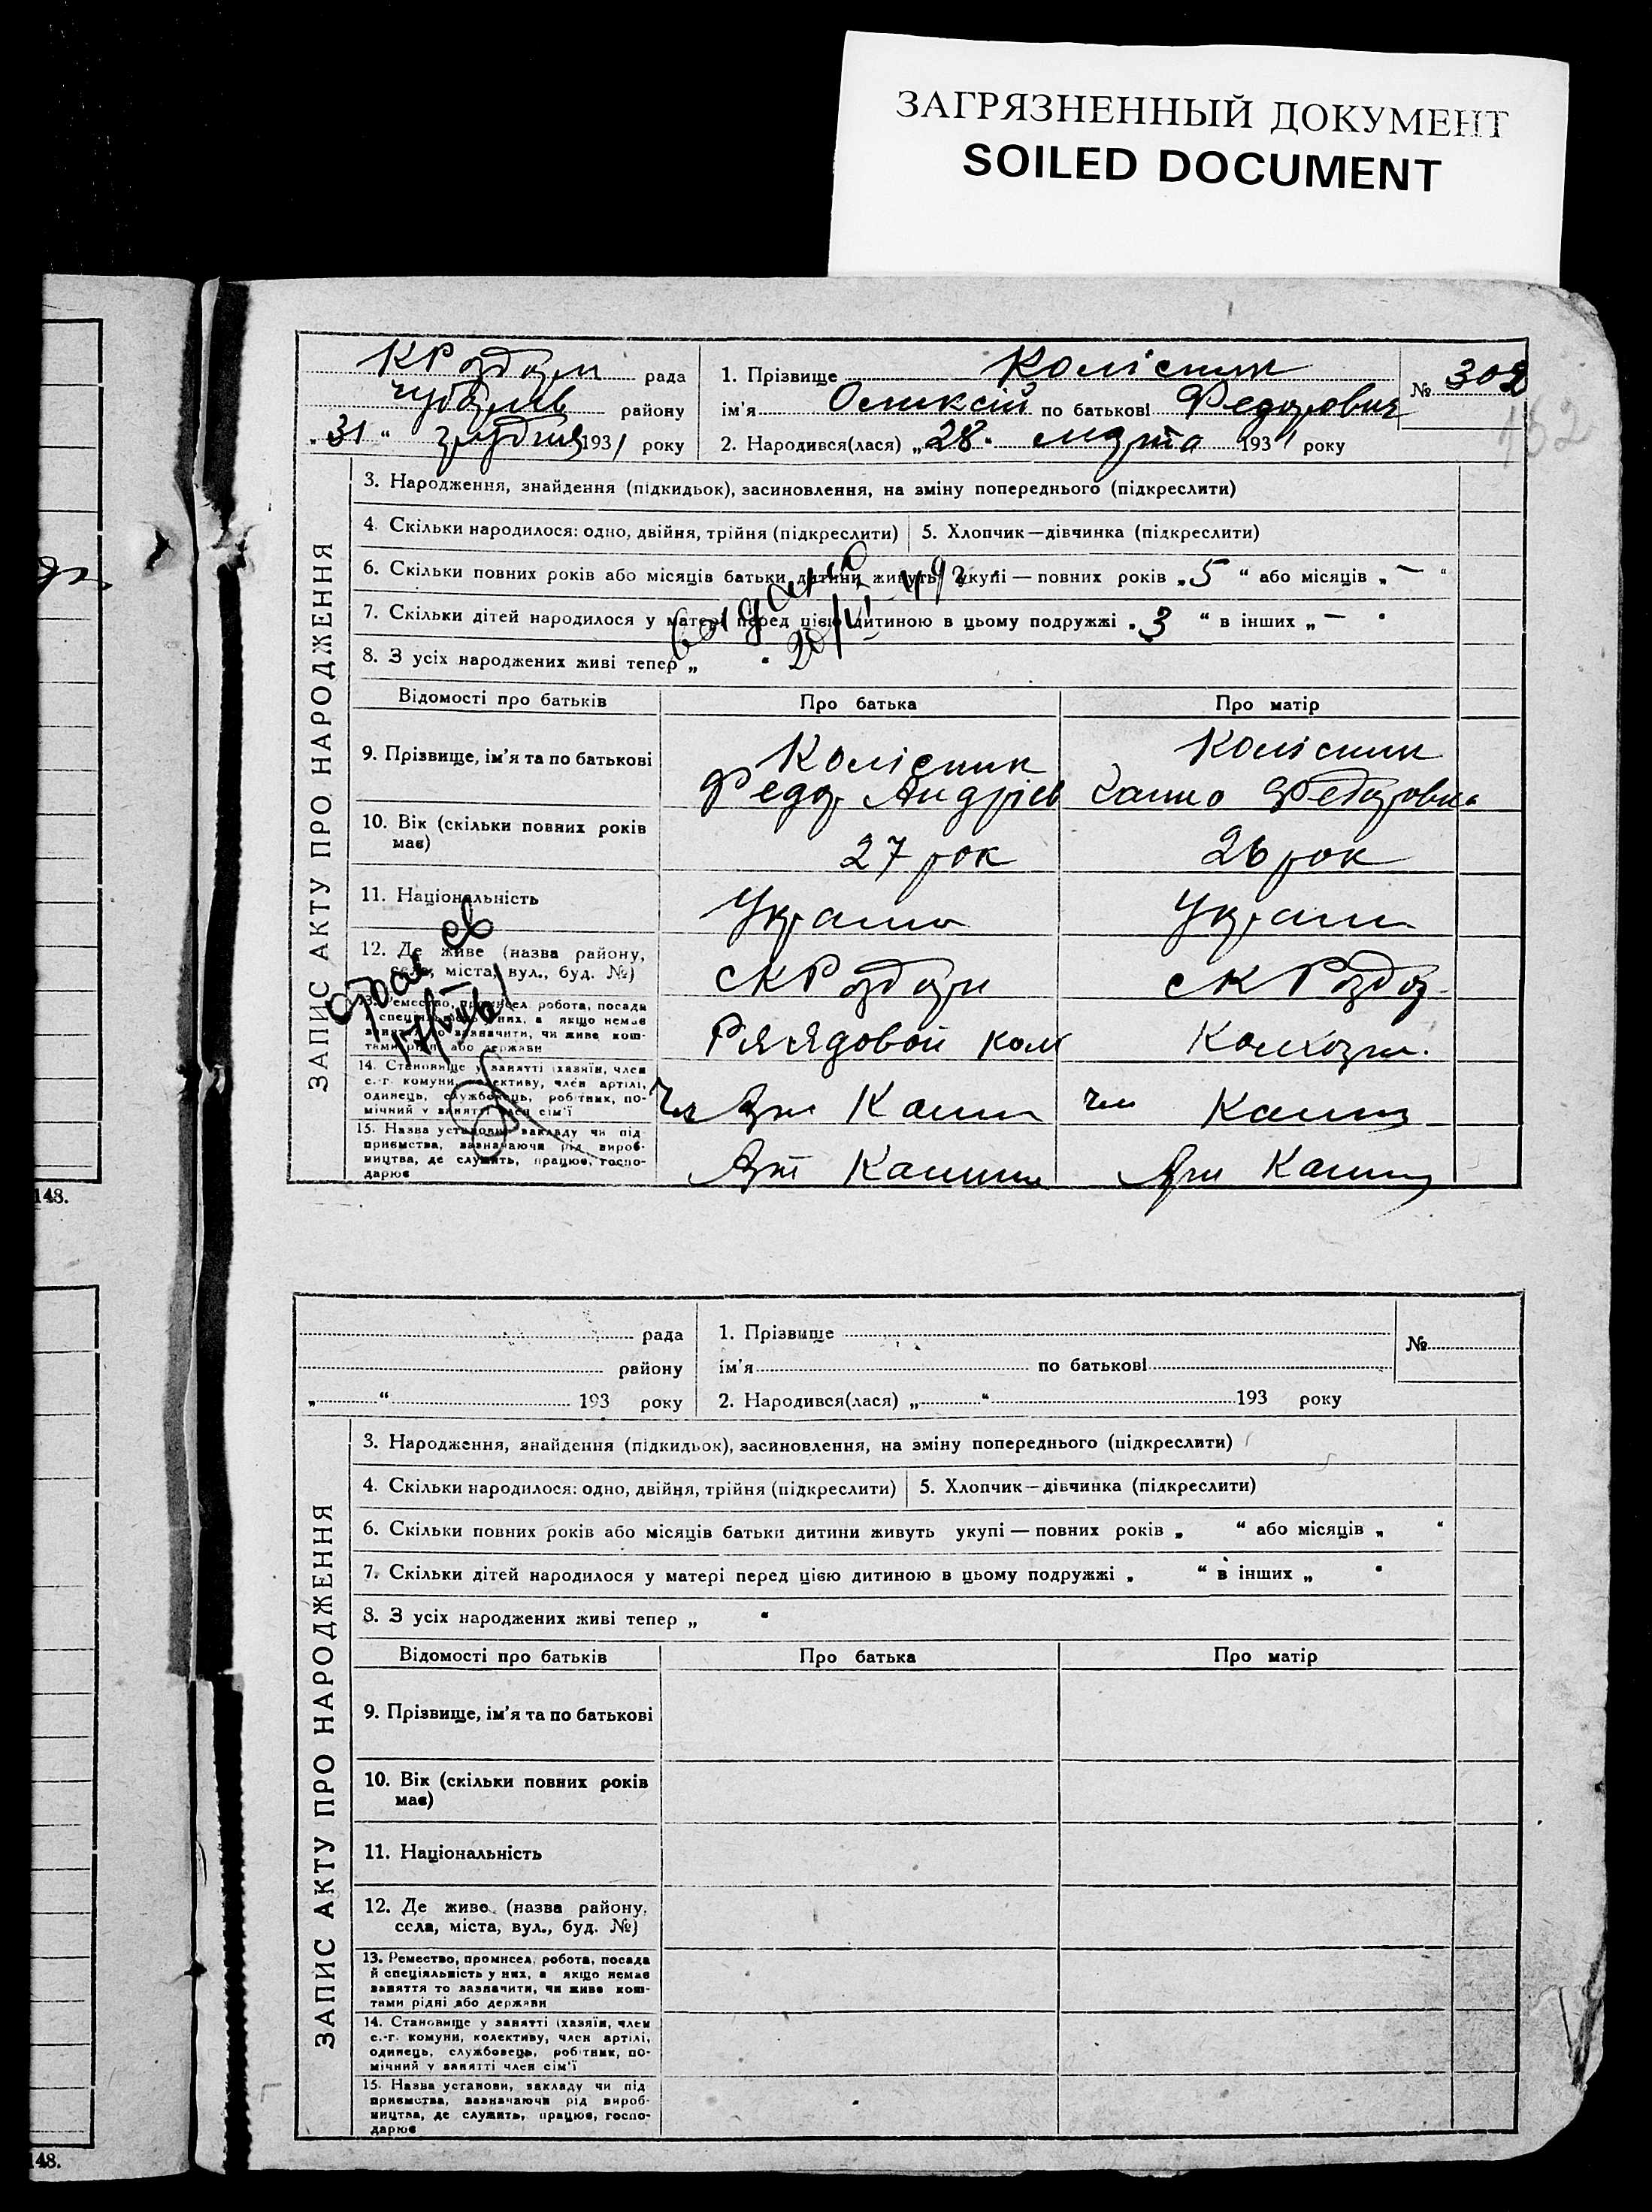 ЗАГРЯЗНЕННЫЙ ДОКУМЕНТ
SOILED DOCUMENT
КРоздори рада
Чубарів району
„31“ грудня 1931 року
1. Прізвище Колісник
ім'я Оликсій по батькові Федорович
2. Народився(лася) „28“ марта 1931 року
№ 302
162
ЗАПИС АКТУ ПРО НАРОДЖЕННЯ
3. Народження, знайдення (підкидьок), засиновлення, на зміну попереднього (підкреслити)
4. Скільки народилося: одно, двійня, трійня (підкреслити)
5. Хлопчик—дівчинка (підкреслити)
6. Скільки повних років або місяців батьки дитини живуть укупі — повних років „5“ або місяців „—“
7. Скільки дітей народилося у матері перед цією дитиною в цьому подружжі „3“ в інших „—“
8. З усіх народжених живі тепер „ “
Відомості про батьків Про батька Про матір
9. Прізвище, ім'я та по батькові
Колісник Колісник
Федор Андрієв Ганна Федоровна
10. Вік (скільки повних років
має)
27 рок 26 рок
11. Національність
Україн Україн
12. Де живе (назва району,
села, міста, вул., буд. №)
сКРоздори сКРоздо
13. Ремество, промисел, робота, посада
й спеціяльність у них, а якщо немає
заняття то зазначити, чи живе кош-
тами рідні або держави
Рядовой кол Колхозн.
14. Становище у занятті (хазяїн, член
с.-г. комуни, колективу, член артілі,
одинець, службовець, робітник, по-
мічний у занятті член сім'ї
Чл Арт Калин чл Калин
15. Назва установи, закладу чи під
приємства, зазначаючи рід вироб-
ництва, де служить, працює, госпо-
дарює
Арт Калин Арт Калин
148.
рада
району
„ “ 193 року
1. Прізвище
ім'я по батькові
2. Народився(лася) „ “ 193 року
№
ЗАПИС АКТУ ПРО НАРОДЖЕННЯ
3. Народження, знайдення (підкидьок), засиновлення, на зміну попереднього (підкреслити)
4. Скільки народилося: одно, двійня, трійня (підкреслити)
5. Хлопчик—дівчинка (підкреслити)
6. Скільки повних років або місяців батьки дитини живуть укупі — повних років „ “ або місяців „ “
7. Скільки дітей народилося у матері перед цією дитиною в цьому подружжі „ “ в інших „ “
8. З усіх народжених живі тепер „ “
Відомості про батьків Про батька Про матір
9. Прізвище, ім'я та по батькові
10. Вік (скільки повних років
має)
11. Національність
12. Де живе (назва району,
села, міста, вул., буд. №)
13. Ремество, промисел, робота, посада
й спеціяльність у них, а якщо немає
заняття то зазначити, чи живе кош-
тами рідні або держави
14. Становище у занятті (хазяїн, член
с.-г. комуни, колективу, член артілі,
одинець, службовець, робітник, по-
мічний у занятті член сім'ї
15. Назва установи, закладу чи під
приємства, зазначаючи рід вироб-
ництва, де служить, працює, госпо-
дарює
148.